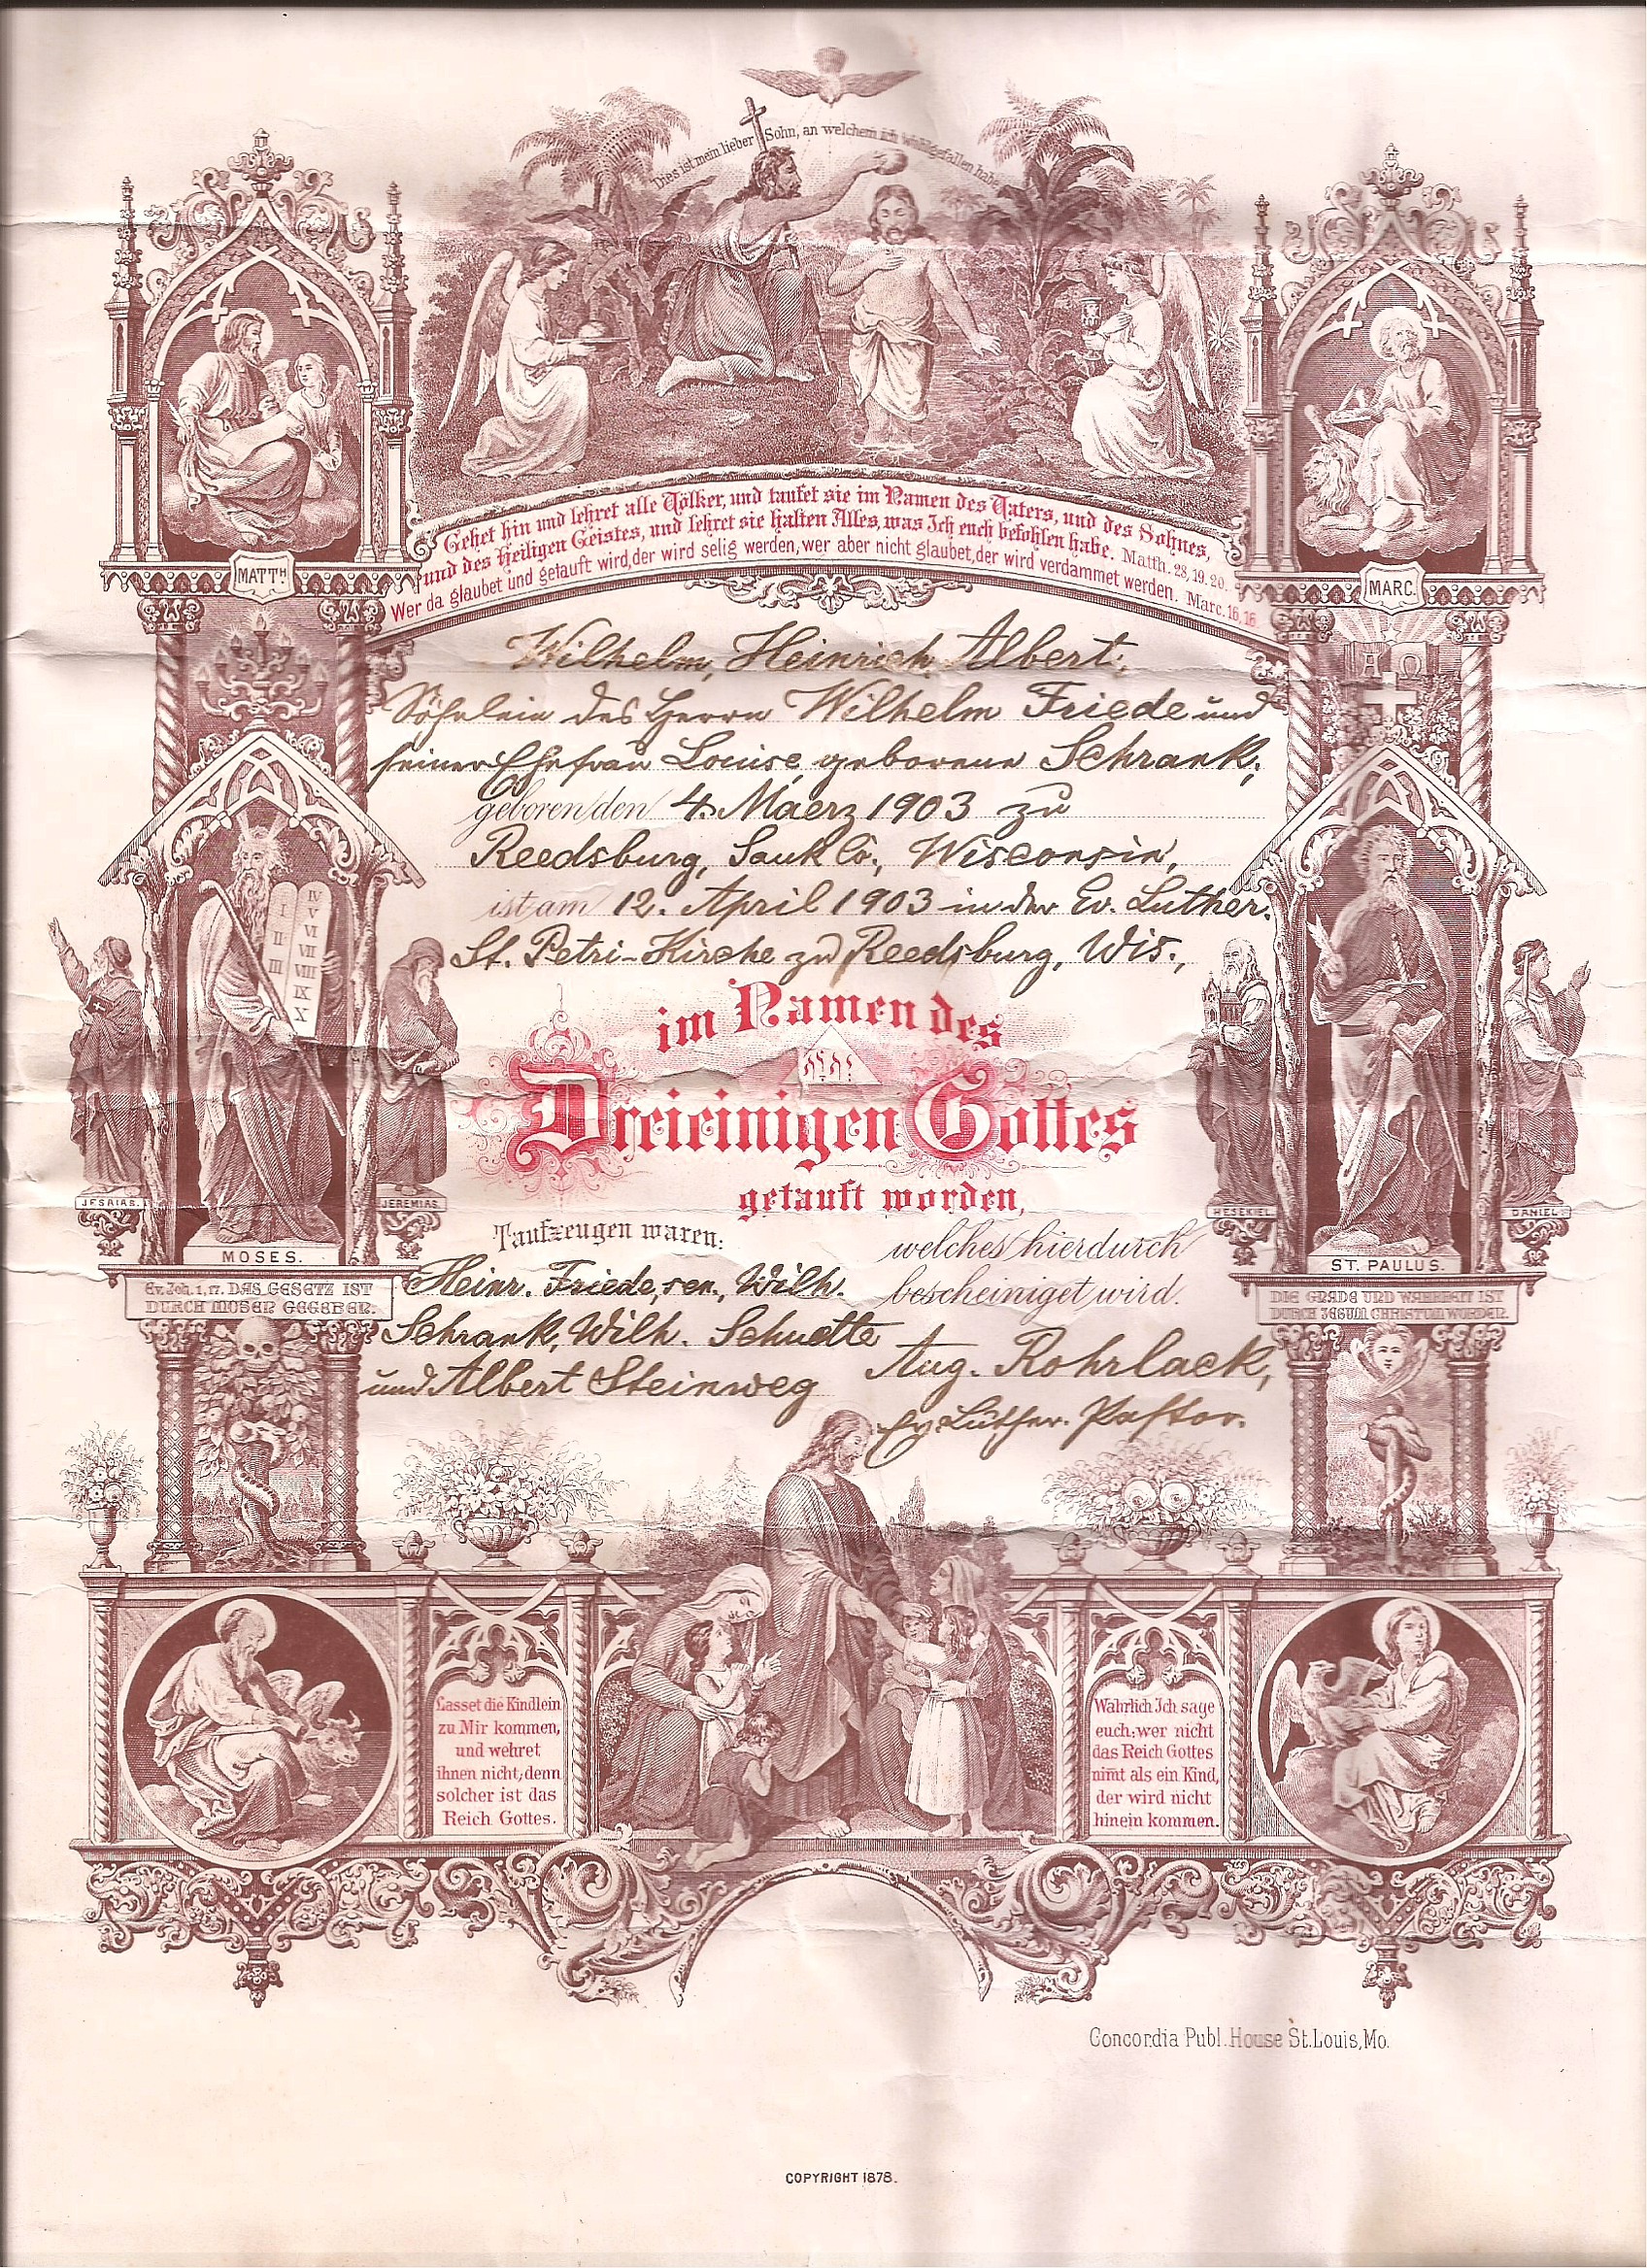 Dies ist mein lieber Sohn, an welchem ich wohlgefallen habe
Gehet hin und lehret alle Völker, und taufet sie im Namen des Vaters, und des Sohnes,
und des Heiligen Geistes, und lehret sie halten Alles, was Ich euch befohlen habe. Matth. 28, 19. 20.
Wer da glaubet und getauft wird, der wird selig werden, wer aber nicht glaubet, der wird verdammet werden. Marc. 16, 16
MATTH.
MARC.
Wilhelm, Heinrich, Albert,
Α Ω
Söhnlein des Herrn Wilhelm Friede und
seiner Ehefrau Louise, geborene Schrank,
geboren den 4. Maerz 1903 zu
Reedsburg, Sauk Co., Wisconsin,
ist am 12. April 1903 in der Ev. Luther.
St. Petri-Kirche zu Reedsburg, Wis.,
I II III IV V VI VII VIII IX X
im Namen des
יהוה
Dreieinigen Gottes
getauft worden,
JESAIAS.
JEREMIAS.
HESEKIEL
DANIEL.
MOSES.
ST. PAULUS.
Taufzeugen waren:
Heinr. Friede, sen., Wilh.
Schrank, Wilh. Schuette
und Albert Steinweg
welches hierdurch
bescheiniget wird.
Aug. Rohrlack,
Ev. Luther. Pastor.
Ev. Joh. 1, 17. DAS GESETZ IST
DURCH MOSEN GEGEBEN.
DIE GNADE UND WAHRHEIT IST
DURCH JESUM CHRISTUM WORDEN.
Lasset die Kindlein
zu Mir kommen,
und wehret
ihnen nicht, denn
solcher ist das
Reich Gottes.
Wahrlich Ich sage
euch: wer nicht
das Reich Gottes
nim̅t als ein Kind,
der wird nicht
hinein kommen.
Concordia Publ. House St. Louis, Mo.
COPYRIGHT 1878.